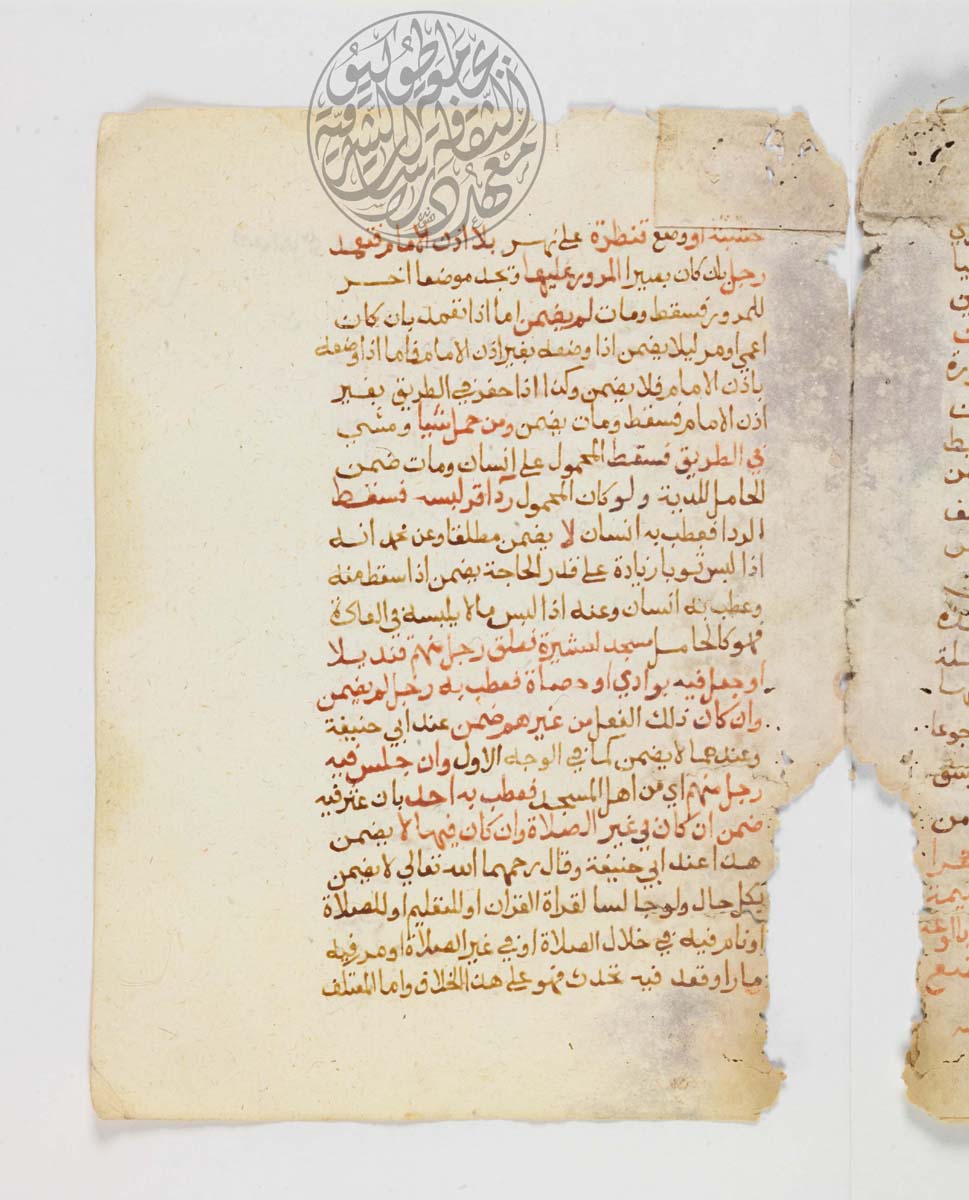 خشبة او وضع قنطرة على نهر بلا اذن الامام فتعمد
رجل بان كان بصيرا المرور عليها وتجد موضعا اخر
للمرور فسقط ومات لم يضمن اما اذا تعمد بان كان
اعمى او مر ليلا يضمن اذا وضعه بغير اذن الامام فاما اذا وضعه
باذن الامام فلا يضمن وكذا اذا حفر في الطريق بغير
اذن الامام فسقط ومات يضمن ومن حمل شيا ومشى
في الطريق فسقط المحمول على انسان ومات ضمن
الحامل للدية ولو كان المحمول ردا قد لبسه فسقط
الردا فعطب به انسان لا يضمن مطلقا وعن محمد انه
اذا لبس ثوبا زيادة على قدر الحاجة يضمن اذا سقط منه
وعطب به انسان وعنه اذا لبس ما لا يلبسه في العادة
فهو كالحامل مسجد لعشيرة فعلق رجل منهم قنديلا
او جعل فيه بوادي او حصاة فعطب به رجل لم يضمن
وان كان ذلك الفعل من غيرهم ضمن عند ابي حنيفة
وعندهما لا يضمن كما في الوجه الاول وان جلس فيه
رجل منهم اي من اهل المسجد فعطب به احد بان عثر فيه
ضمن ان كان في غير الصلاة وان كان فيها لا يضمن
هذا عند ابي حنيفة وقال رحمهما الله تعالى لا يضمن
بكل حال ولو جالسا لقراة القران او للتعليم او للصلاة
او نام فيه في خلال الصلاة او في غير الصلاة او مر فيه
مارا او قعد فيه تحدث فهو على هذا الخلاف واما المعتكف